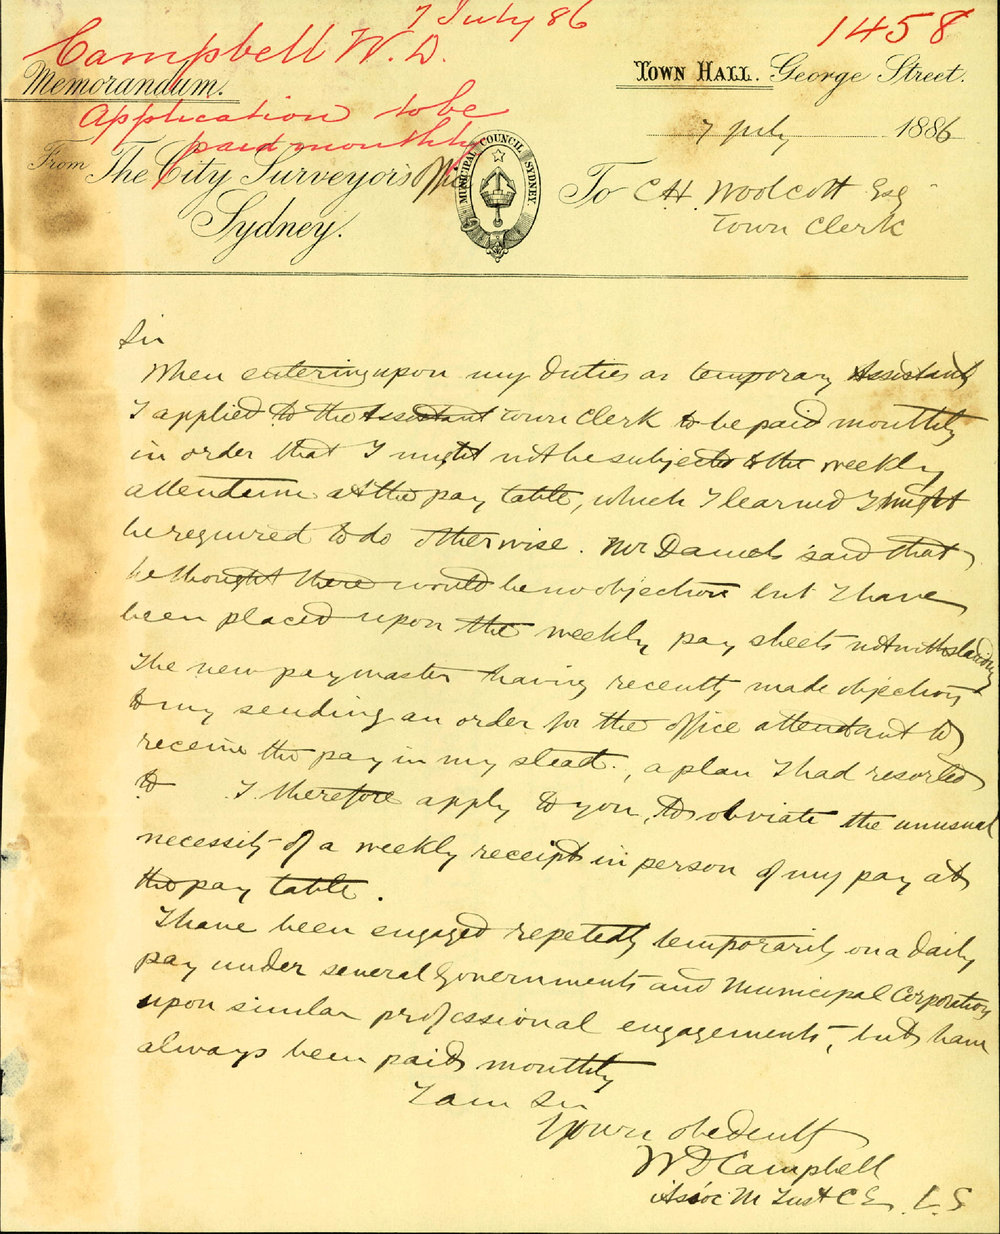 7 July 86
1458
Campbell W. D.
Memorandum.
Application to be
paid monthly
Town Hall. George Street.
7 July 1886
From The City Surveyor's Office
Sydney.
MUNICIPAL COUNCIL SYDNEY.
To C.H. Woolcott Esq
Town Clerk
Sir
When entering upon my duties as temporary Assistant
I applied to the Assistant Town Clerk to be paid monthly
in order that I might not be subjected to the weekly
attendance at the pay table, which I learned I might
be required to do otherwise. Mr Daniels said that
he thought there would be no objection but I have
been placed upon the weekly pay sheets notwithstanding
The new paymaster having recently made objections
to my sending an order for the office attendant to
receive the pay in my stead, a plan I had resorted
to I therefore apply to you, to obviate the unusual
necessity of a weekly receipt in person of my pay at
the pay table.
I have been engaged repetedly temporarily on a daily
pay under several Governments and Municipal Corporations
upon similar professional engagements, but have
always been paid monthly
I am Sir
Yours obediently
W D Campbell
Assoc M Inst C E, L.S